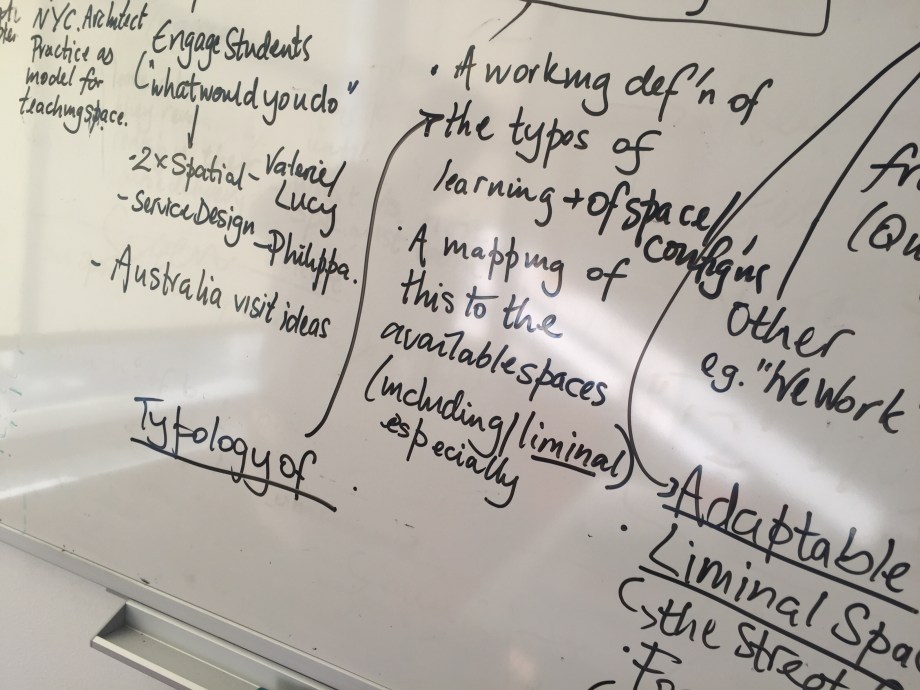 NYC. Architect
Practice as
model for
teachingspace.
Engage Students
("what would you do"
·2x Spatial - Valerie/
Lucy
- Service Design - Philippa.
- Australia visit ideas
Typology of
· A working def'n of
the types of
learning + of space/
config'ns
· A mapping of
this to the
available spaces
(including/liminal)
especially
Other
eg. "WeWork
(Qu
Adaptable
· Liminal Spa
the street